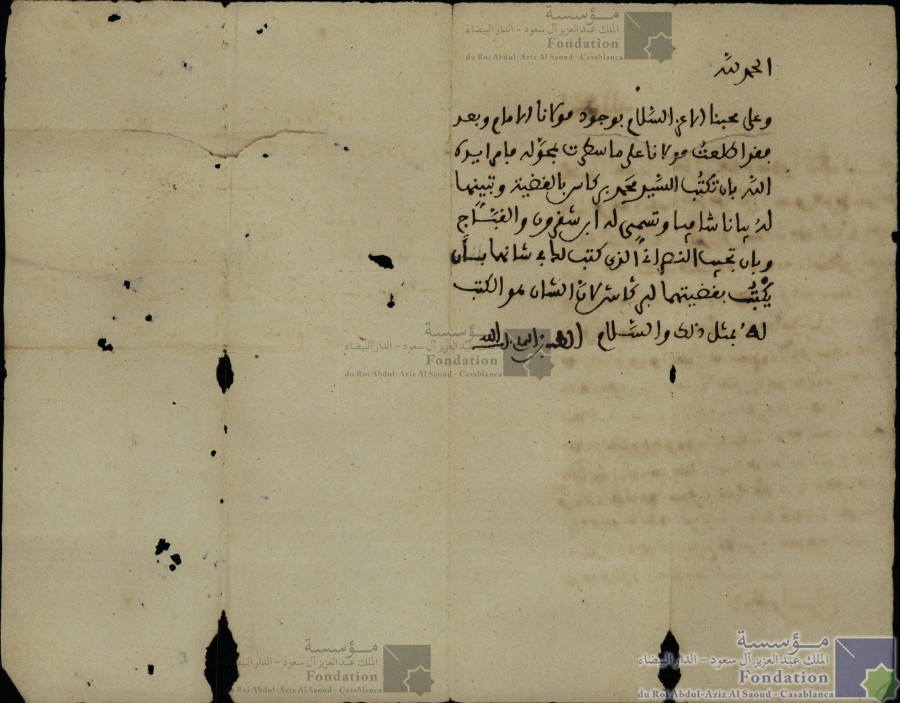 الحمد لله
وعلى محبنا الاعز السلام بوجود مولانا الامام وبعد
فقد اطلعت مولانا على ما سطرت بحوله فامر ايده
الله بان تكتب للسيد محمد بركاش بالقضية وتبينها
له بيانا شافيا وتسمي له ابن شقرون والفتاح
وبان تجيب الذي كتب لك في شانها بان
يكتب بقضيتهما لبركاش لان الشان هو الكتب
له بمثل ذلك والسلام
مؤسسة
الملك عبد العزيز آل سعود - الدار البيضاء
Fondation
du Roi Abdul-Aziz Al Saoud - Casablanca
مؤسسة
الملك عبد العزيز آل سعود - الدار البيضاء
Fondation
du Roi Abdul-Aziz Al Saoud - Casablanca
مؤسسة
الملك عبد العزيز آل سعود - الدار البيضاء
Fondation
du Roi Abdul-Aziz Al Saoud - Casablanca
مؤسسة
الملك عبد العزيز آل سعود - الدار البيضاء
Fondation
du Roi Abdul-Aziz Al Saoud - Casablanca